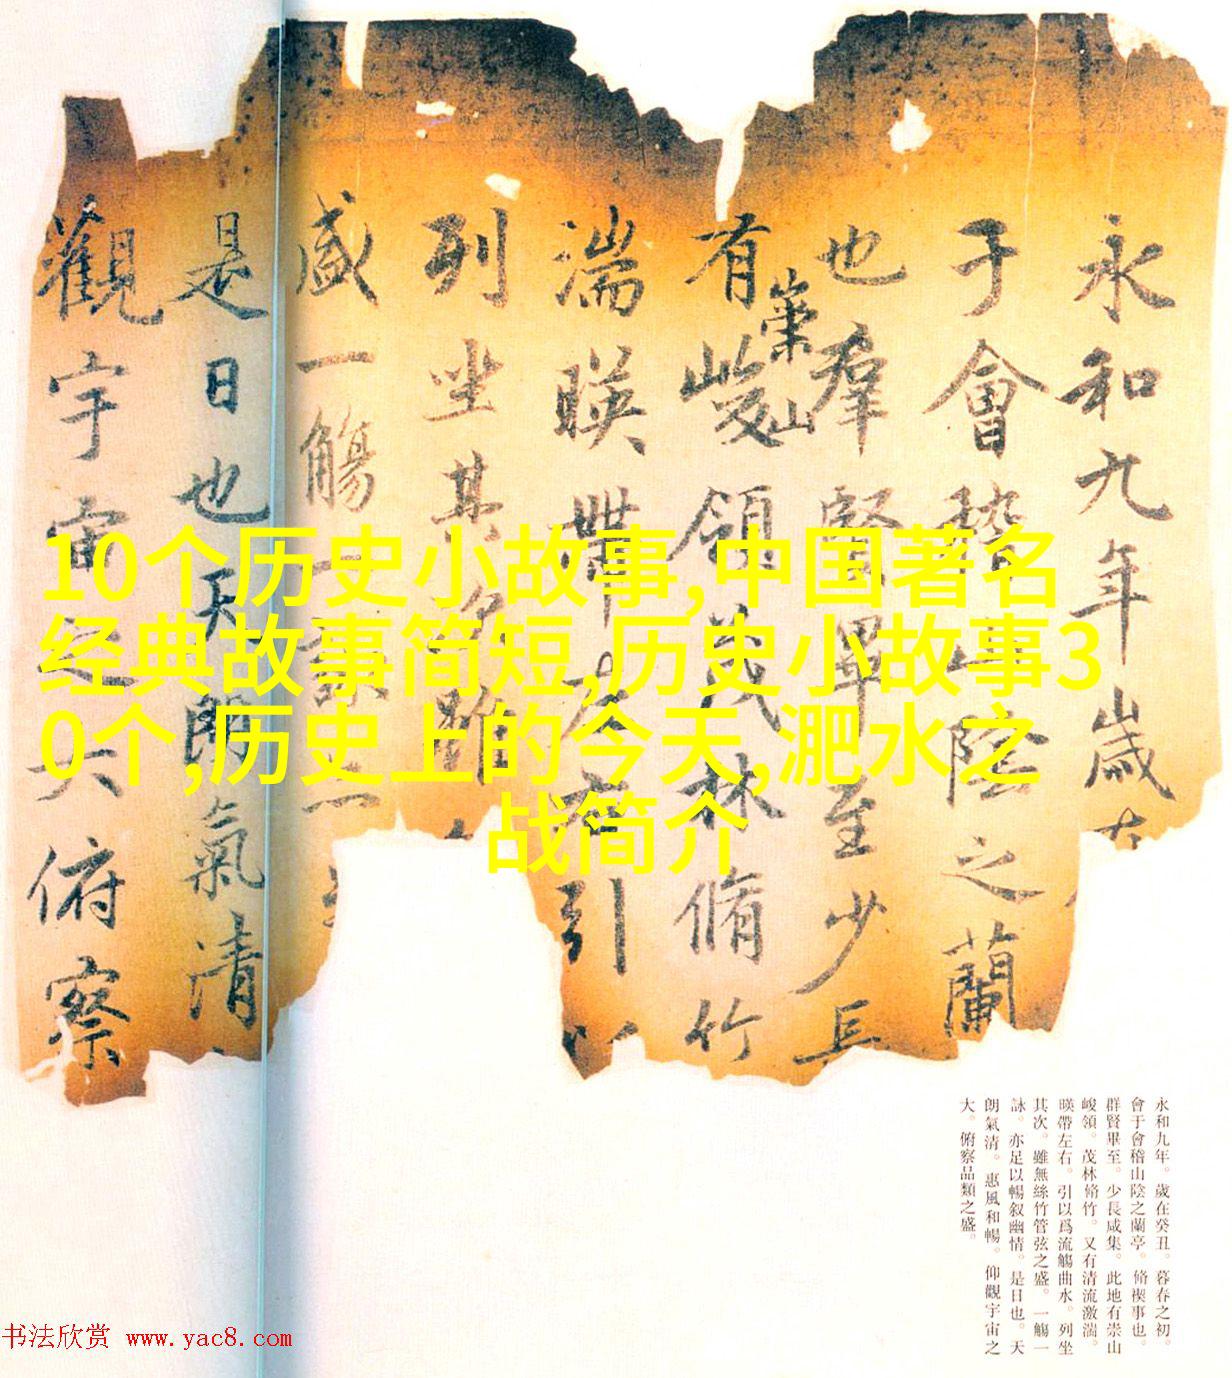 永和九年歲在
于會稽山陰之蘭
也羣賢畢至少長
有崇山峻領茂林脩竹
湍暎帶左右引以
列坐其次雖
盛一觴一詠亦
是日也天朗氣清
觀宇宙之大俯察
10个历史小故事,中国著名
经典故事简短,历史小故事3
0个,历史上的今天,淝水之
战简介
永和九年。歲在癸丑。暮春之初。
會于會稽山陰之蘭亭。脩禊事也。
群賢畢至。少長咸集。此地有崇山
峻領。茂林脩竹。又有清流激湍。
暎帶左右。引以爲流觴曲水。列坐
其次。雖無絲竹管弦之盛。一觴一
詠。亦足以暢叙幽情。是日也。天
朗氣清。惠風和暢。仰觀宇宙之
大。俯察品類之盛。
书法欣赏 www.yac8.com